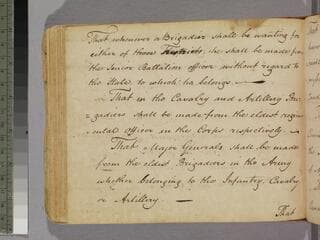 That whenever a Brigadier shall be wanting for
either of those he shall be made from
the Senior Battalion officer without regard to
the State to which he belongs —
— That in the Cavalry and Artillery Bri-
=gadiers shall be made from the eldest regi-
mental officer in the Corps respectively. —
That Major Generals shall be made
from the eldest Brigadiers in the Army
whether belonging to the Infantry, Cavalry
or Artillery. —
That